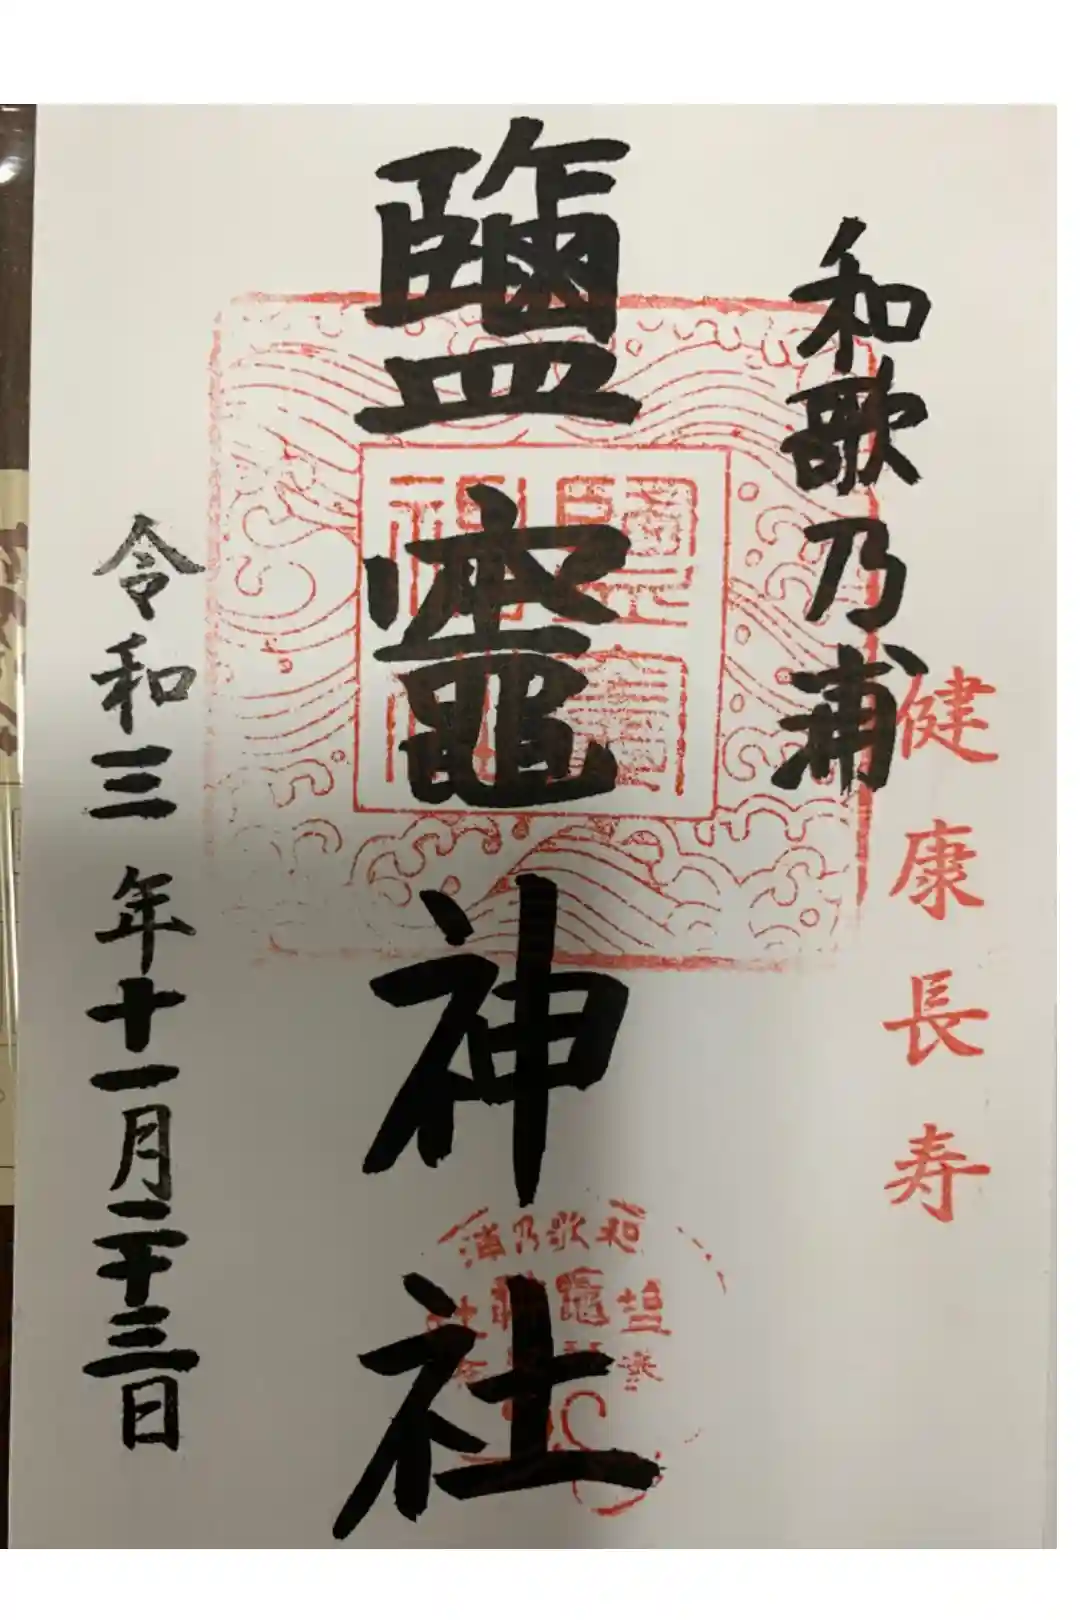 健康長寿
和歌乃浦
鹽竈神社
鹽竈
神
和歌乃浦
令和三年十一月二十三日